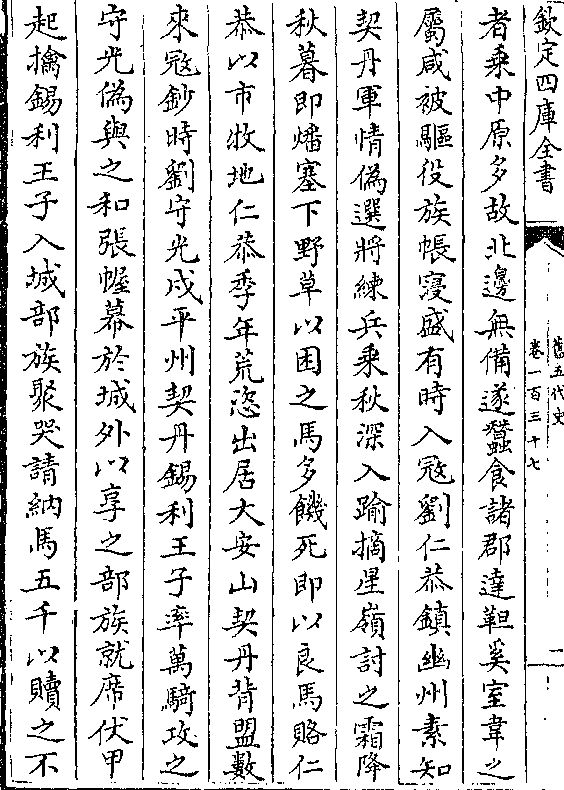 欽定四庫全書
舊五代史
卷一百三十七
二
者乘中原多故北邊無備遂蠶食諸郡達靼奚室韋之
屬咸被驅役族帳寖盛有時入寇劉仁恭鎮幽州素知
契丹軍情偽選將練兵乘秋深入踰摘星嶺討之霜降
秋暮即燔塞下野草以困之馬多饑死即以良馬賂仁
恭以市牧地仁恭季年荒恣出居大安山契丹背盟數
來寇鈔時劉守光戍平州契丹錫利王子率萬騎攻之
守光偽與之和張幄幕於城外以享之部族就席伏甲
起擒錫利王子入城部族聚哭請納馬五千以贖之不